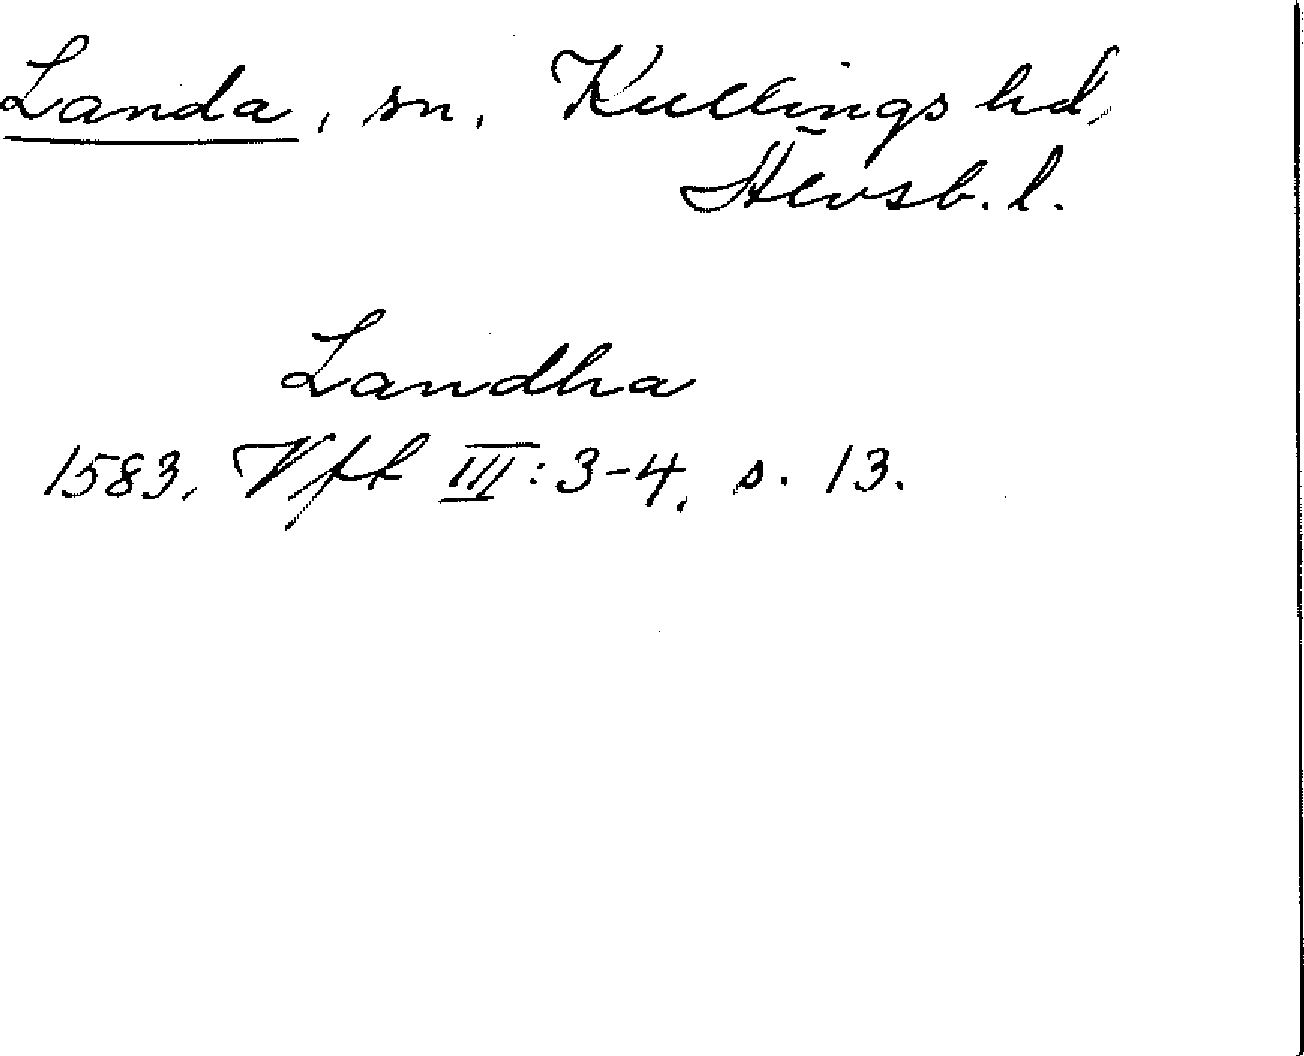 Landa, sn. Kullings hd,
Älvsb. l.
Landha
1583. Vft III: 3-4, s. 13.